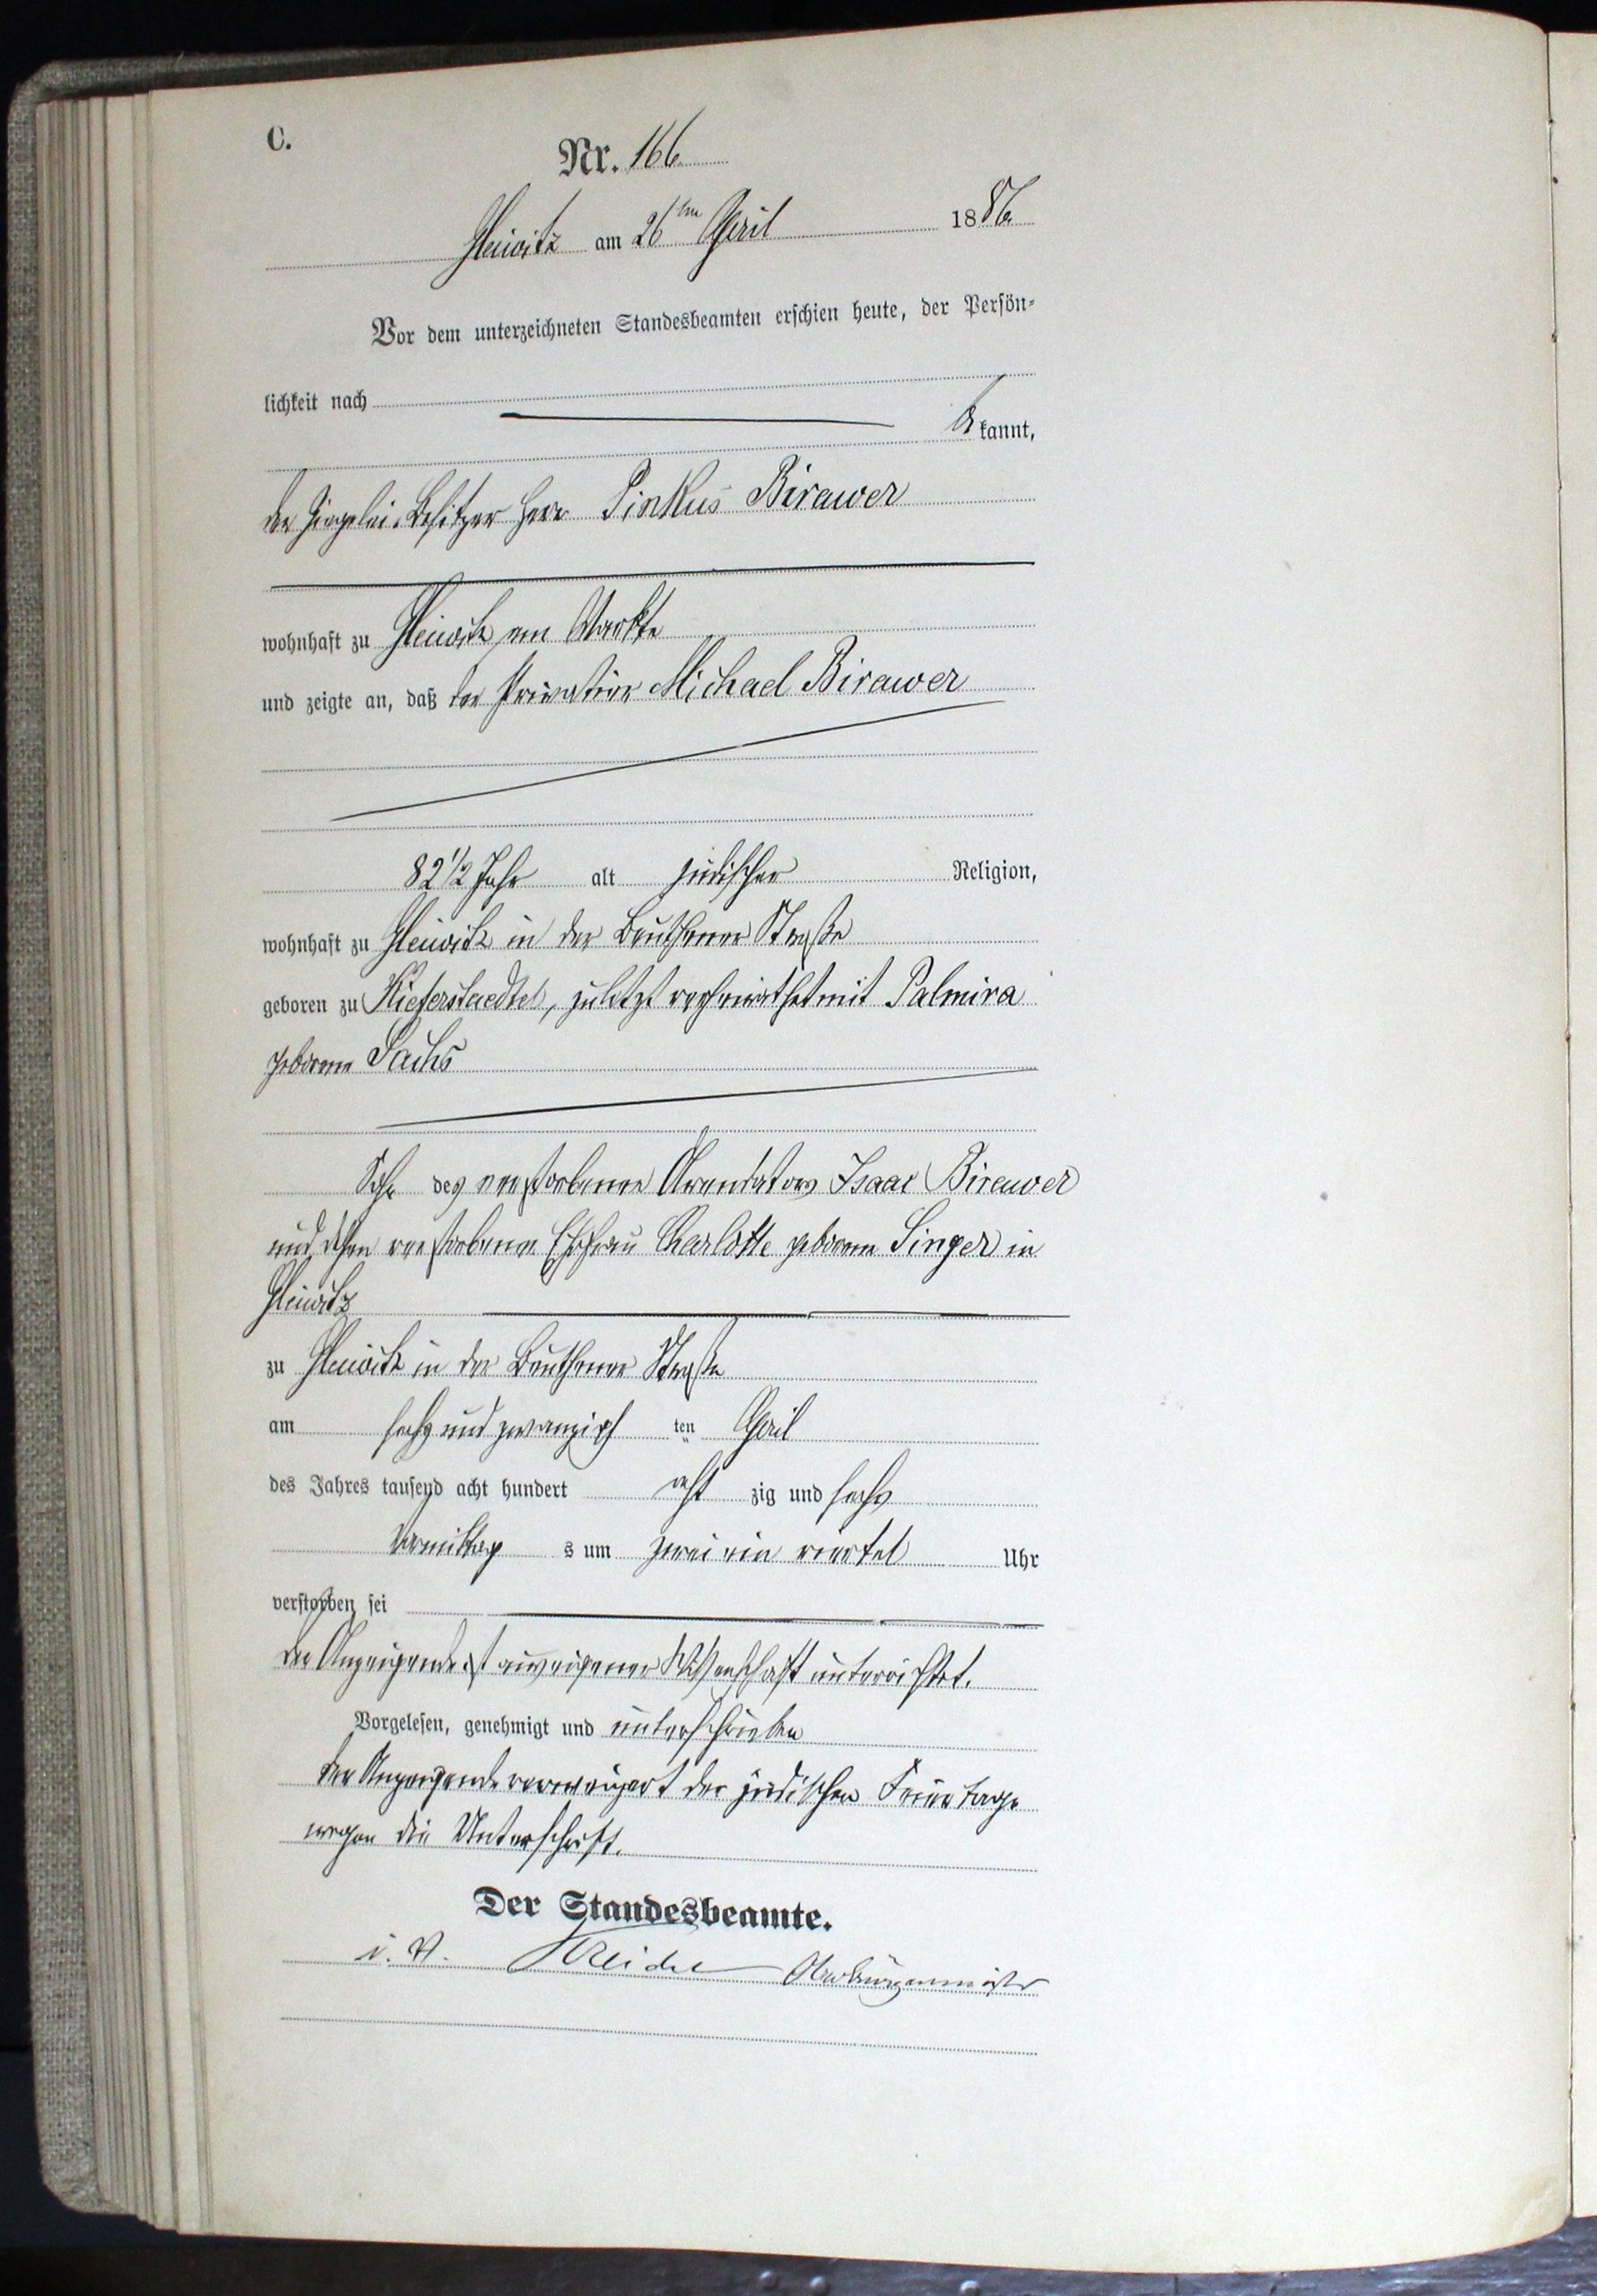 C.
Nr. 166.
Gleiwitz am 26ten April 1886.
Vor dem unterzeichneten Standesbeamten erschien heute, der Persön-
lichkeit nach
bekannt,
der Ziegelei-Besitzer Herr Pinkus Birawer
wohnhaft zu Gleiwitz am Markte
und zeigte an, daß der Privatier Michael Birawer
82 1/2 Jahr alt jüdischer Religion,
wohnhaft zu Gleiwitz in der Beuthener Straße
geboren zu Kieferstaedtel, zuletzt verheirathet mit Palmira
geborene Sachs
Sohn des verstorbenen Arendators Isaac Birawer
und dessen verstorbenen Ehefrau Charlotte geborene Singer in
Gleiwitz
zu Gleiwitz in der Beuthener Straße
am sechs und zwanzigsten April
des Jahres tausend acht hundert achtzig und sechs
Vormittags um zwei ein viertel Uhr
verstorben sei
Der Anzeigende ist aus eigener Wissenschaft unterrichtet.
Vorgelesen, genehmigt und unterschrieben
der Anzeigende verweigert der jüdischen Feiertage
wegen die Unterschrift.
Der Standesbeamte.
i. V. Kreidel Oberbürgermeister